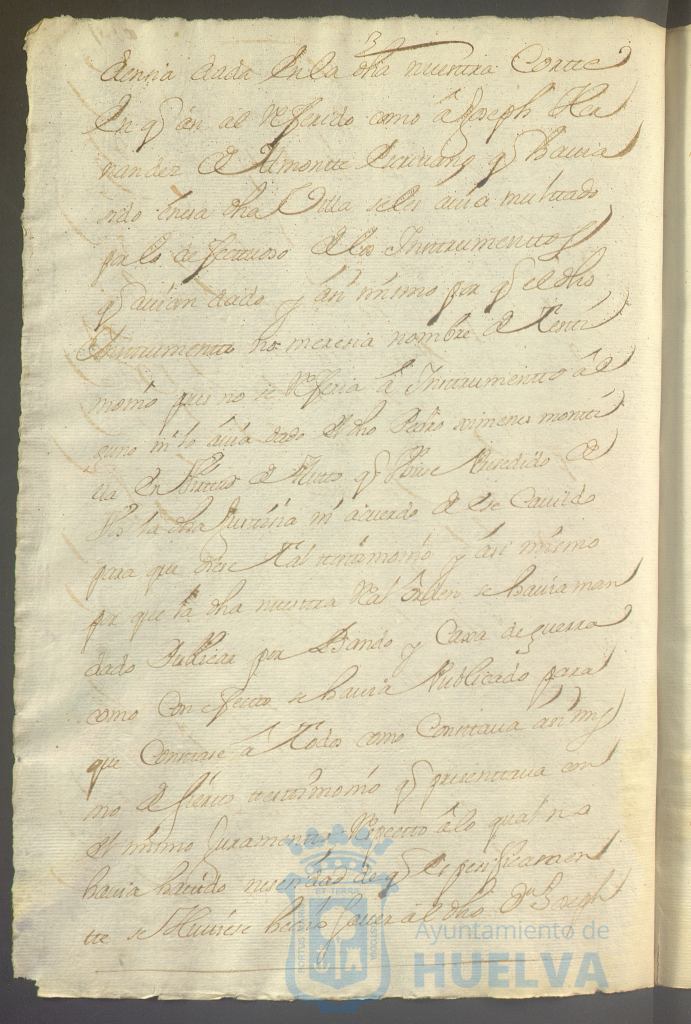 dencia dada En la dha nuestra Corte
En q an al Referido como â Joseph Her
nandez de Almonte Escrivano q havia
sido En esa dha Villa se les avia multado
por lo defectuoso de los Instrumentos
q avian dado y asi mismo por q el dho
Instrumento no merecia nombre de Testi
monio pues no se Referia â Instrumento al
guno ni lo avia dado el dho Pedro ximenes monti
lla En de Autos q Pedido
la dha Justicia ni acuerdo de Ese Cavildo
para que diese Tal testimonio y asi mismo
por que la dha nuestra Ral orden se havia man
dado Publicar por Bando y Caxa de guerra
como Con efecto se havia Publicado para
que Constase â Todos como Constava asi mis
mo de testimonio q presentava con
el mismo Juramento Respecto â lo qual no
havia havido nesesidad de q Espesificamen
te se Huviese hecho saver al dho Dn Joseph
Ayuntamiento de
HUELVA